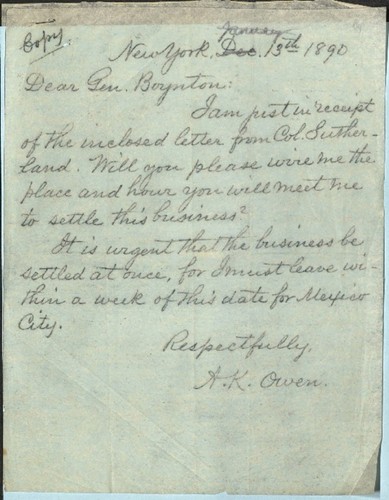 Copy.
January
New York, Dec. 13th 1890
Dear Gen. Boynton:
I am just in receipt
of the inclosed letter from Col. Suther-
land. Will you please wire me the
place and hour you will meet me
to settle this business?
It is urgent that the business be
settled at once, for I must leave wi-
thin a week of this date for Mexico
City.
Respectfully,
A. K. Owen.